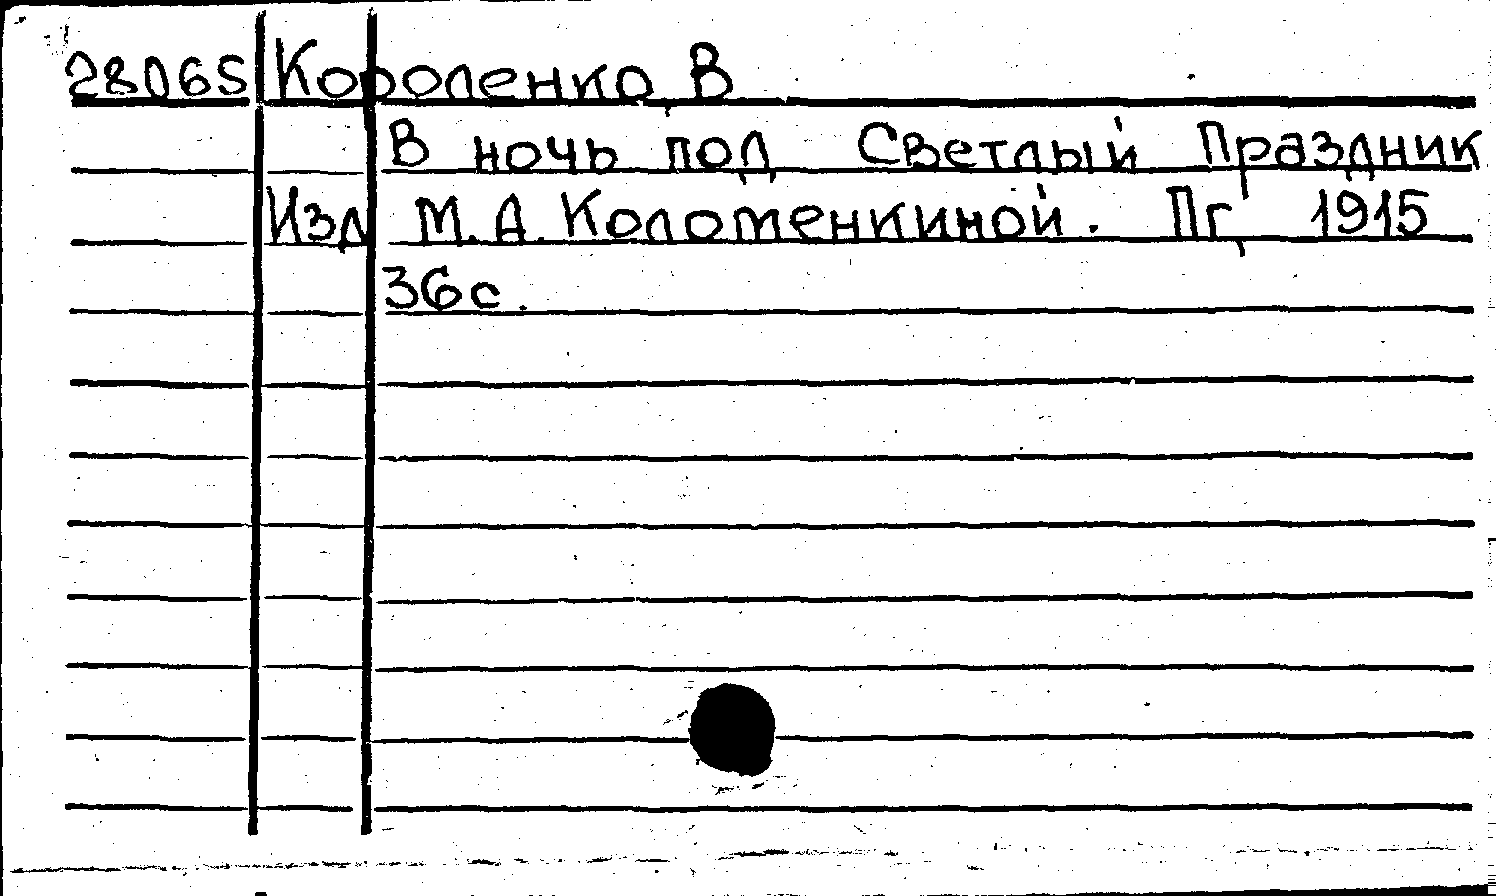 28065 Короленко, В
В ночь под Светлый Праздник
Изд М. А. Коломенкиной. Пг, 1915
36с.